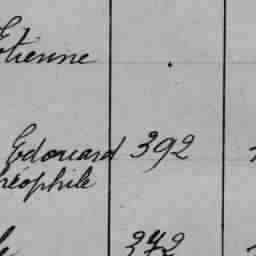 Etienne
Edouard 392
héophile
372